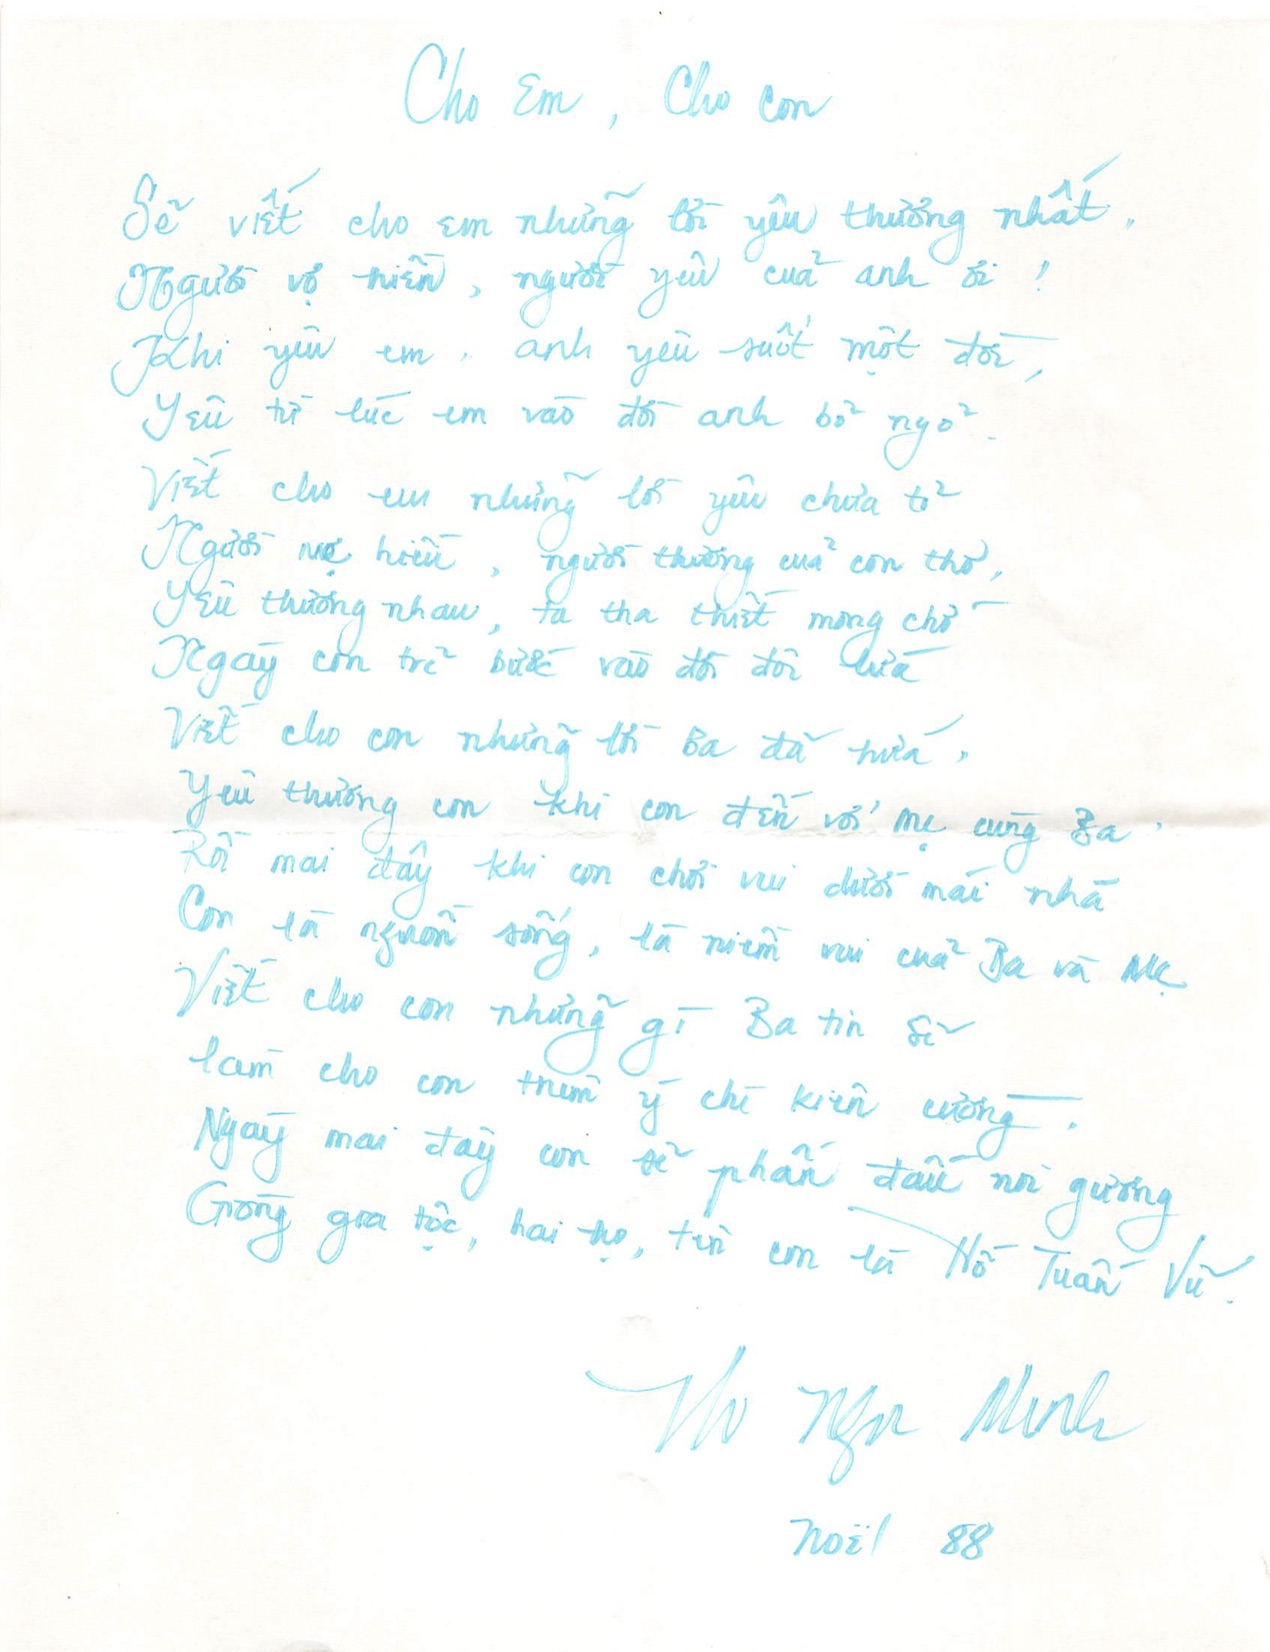 Cho Em, Cho Con
Sẽ viết cho em những lời yêu thương nhất.
Người vợ hiền, người yêu của anh ơi!
Khi yêu em. anh yêu suốt một đời,
Yêu từ lúc em vào đời anh bỡ ngỡ.
Viết cho em những lời yêu chưa tỏ
Người mẹ hiền, người thương của con thơ,
Yêu thương nhau, ta tha thiết mong chờ
Ngày con trẻ bước vào đời đôi lứa
Viết cho con những lời Ba đã hứa.
Yêu thương con khi con đến với Mẹ cùng Ba.
Rồi mai đây khi con chơi vui dưới mái nhà
Con là nguồn sống, là niềm vui của Ba và Mẹ
Viết cho con những gì Ba tin sẽ
làm cho con thêm ý chí kiên cường.
Ngày mai đây con sẽ phấn đấu noi gương
Giòng gia tộc, hai họ, tên con là Hồ Tuấn Vũ.
Minh
Noël 88